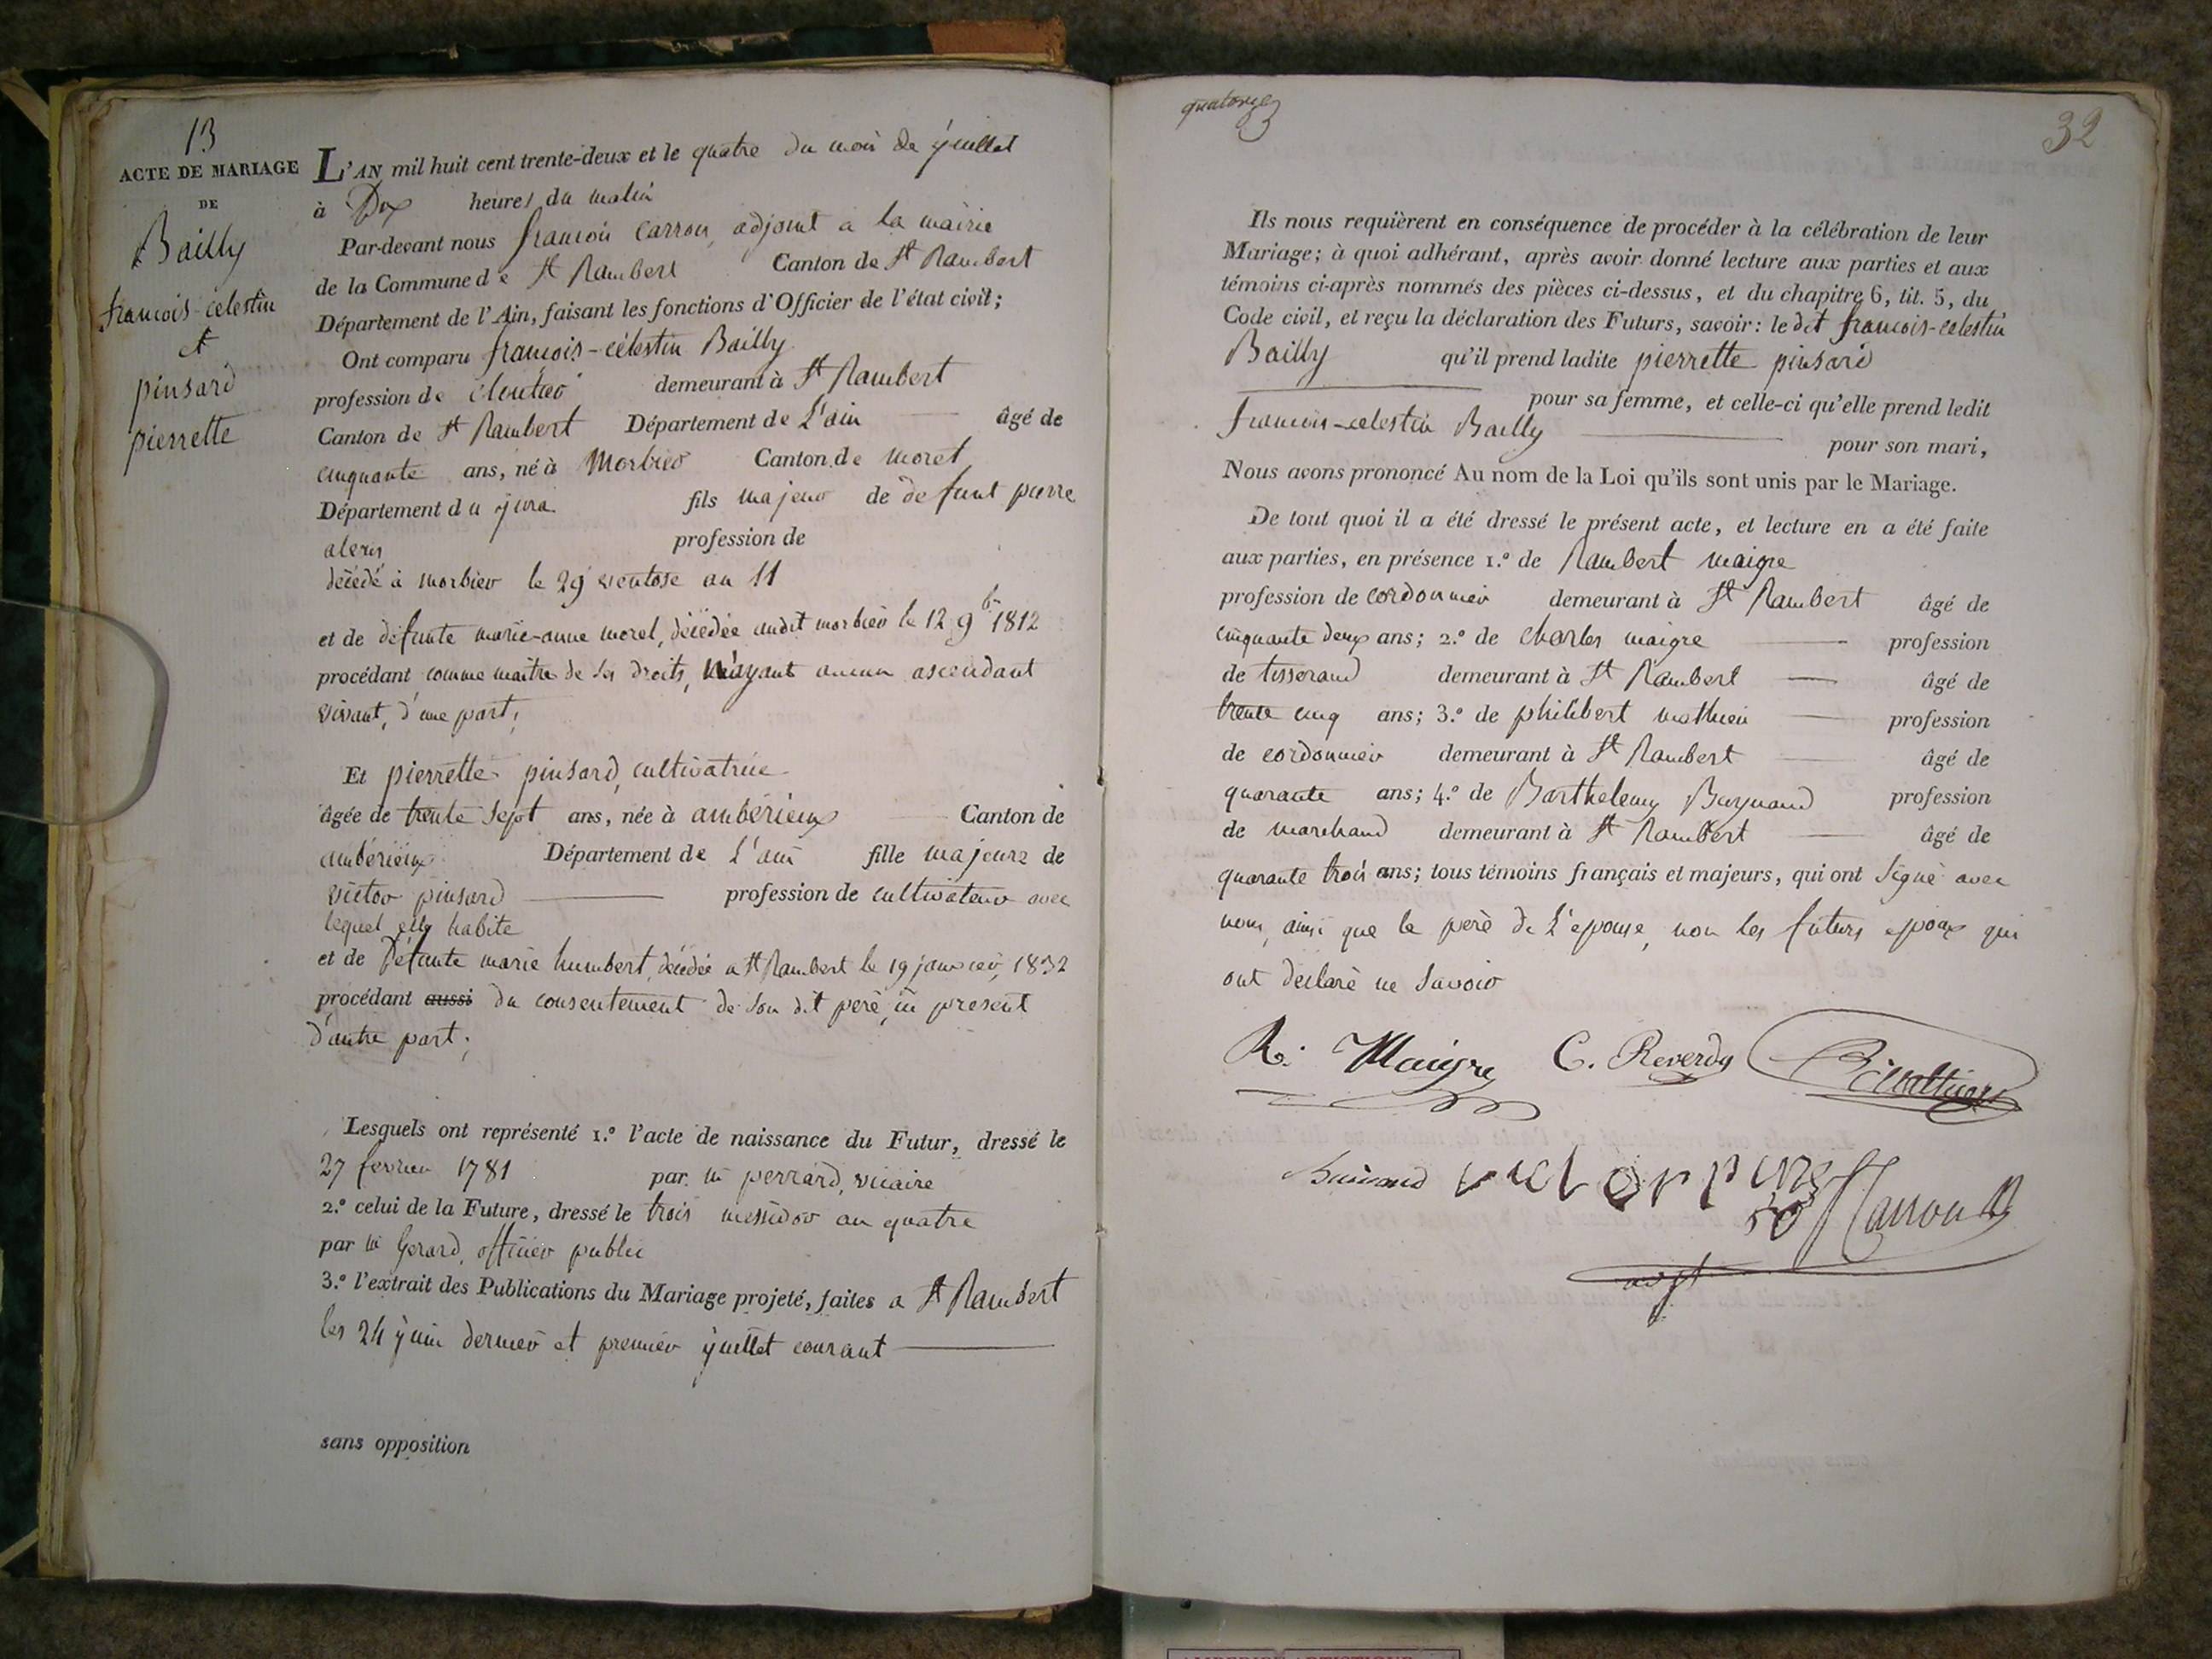 13
ACTE DE MARIAGE
DE
Bailly
francois-celestin
et
pinsard
pierrette
L'AN mil huit cent trente-deux et le quatre du mois de juillet
à Dix heures du matin
Par-devant nous francois Carron, adjoint a la mairie
de la Commune de St Rambert Canton de St Rambert
Département de l'Ain, faisant les fonctions d'Officier de l'état civil;
Ont comparu francois-célestin Bailly
profession de cloutier demeurant à St Rambert
Canton de St Rambert Département de L'ain âgé de
cinquante ans, né à Morbier Canton de moret
Département du jura fils majeur de defunt pierre
alexis profession de
décédé à morbier le 29 ventose an 11
et de défunte marie-anne morel, décédée audit morbier le 12 9bre 1812
procédant comme maitre de ses droits, n'ayant aucun ascendant
vivant, d'une part;
Et pierrette pinsard, cultivatrice
âgée de trente sept ans, née à ambérieux Canton de
ambérieux Département de L'ain fille majeure de
victor pinsard profession de cultivateur avec
lequel elle habite
et de Défunte marie humbert, décédée a St Rambert le 19 janvier, 1832
procédant aussi du consentement de son dit père, ici present
d'autre part;
Lesquels ont représenté 1.º l'acte de naissance du Futur, dressé le
27 fevrier 1781 par m perrard, vicaire
2.º celui de la Future, dressé le trois messidor an quatre
par m Gerard, officier public
3.º l'extrait des Publications du Mariage projeté, faites a St Rambert
les 24 juin dernier et premier juillet courant
sans opposition
quatorze
32
Ils nous requièrent en conséquence de procéder à la célébration de leur
Mariage; à quoi adhérant, après avoir donné lecture aux parties et aux
témoins ci-après nommés des pièces ci-dessus, et du chapitre 6, tit. 5, du
Code civil, et reçu la déclaration des Futurs, savoir: le dit francois-celestin
Bailly qu'il prend ladite pierrette pinsard
pour sa femme, et celle-ci qu'elle prend ledit
francois-celestin Bailly pour son mari,
Nous avons prononcé Au nom de la Loi qu'ils sont unis par le Mariage.
De tout quoi il a été dressé le présent acte, et lecture en a été faite
aux parties, en présence 1.º de Rambert maigre
profession de cordonnier demeurant à St Rambert âgé de
cinquante deux ans; 2.º de charles maigre profession
de tisserand demeurant à St Rambert âgé de
trente cinq ans; 3.º de philibert mathieu profession
de cordonnier demeurant à St Rambert âgé de
quarante ans; 4.º de Barthelemy profession
de marchand demeurant à St Rambert âgé de
quarante trois ans; tous témoins français et majeurs, qui ont signé avec
nous, ainsi que le père de L'epouse, non les futurs epoux qui
ont declaré ne savoir
R. Maigre C. Reverdy
Carron
adjt